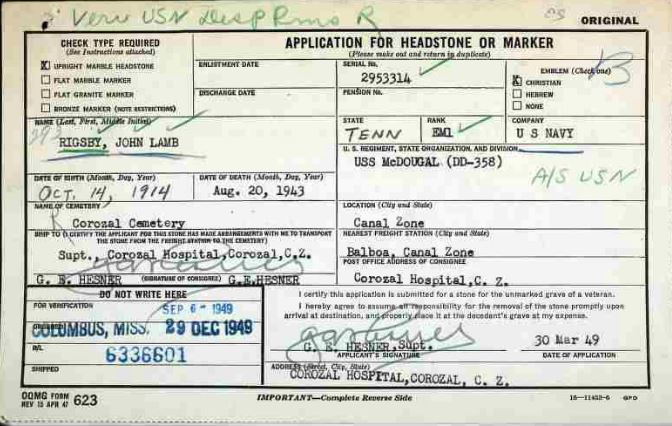 Veri USN Desp Rms R
ORIGINAL
CHECK TYPE REQUIRED
(See Instructions attached)
X UPRIGHT MARBLE HEADSTONE
FLAT MARBLE MARKER
FLAT GRANITE MARKER
BRONZE MARKER (NOTE RESTRICTIONS)
APPLICATION FOR HEADSTONE OR MARKER
(Please make out and return in duplicate)
ENLISTMENT DATE
DISCHARGE DATE
SERIAL No.
2953314
PENSION No.
EMBLEM (Check one)
X CHRISTIAN
HEBREW
NONE
B
NAME (Last, First, Middle Initial)
RIGSBY, JOHN LAMB
STATE
TENN
RANK
EM1
COMPANY
U S NAVY
U. S. REGIMENT, STATE ORGANIZATION, AND DIVISION
USS McDOUGAL (DD-358)
A/S USN
DATE OF BIRTH (Month, Day, Year)
OCT. 14, 1914
DATE OF DEATH (Month, Day, Year)
Aug. 20, 1943
NAME OF CEMETERY
Corozal Cemetery
LOCATION (City and State)
Canal Zone
SHIP TO (I CERTIFY THE APPLICANT FOR THIS STONE HAS MADE ARRANGEMENTS WITH ME TO TRANSPORT
THE STONE FROM THE FREIGHT STATION TO THE CEMETERY)
Supt., Corozal Hospital,Corozal,C.Z.
NEAREST FREIGHT STATION (City and State)
Balboa, Canal Zone
POST OFFICE ADDRESS OF CONSIGNEE
Corozal Hospital,C. Z.
G. E. HESNER (SIGNATURE OF CONSIGNEE) G.E.HESNER
DO NOT WRITE HERE
FOR VERIFICATION
SEP 6 - 1949
ORDERED
COLUMBUS, MISS. 29 DEC 1949
B/L
6336601
SHIPPED
I certify this application is submitted for a stone for the unmarked grave of a veteran.
I hereby agree to assume all responsibility for the removal of the stone promptly upon
arrival at destination, and properly place it at the decedent's grave at my expense.
G. E. HESNER,Supt. 30 Mar 49
APPLICANT'S SIGNATURE DATE OF APPLICATION
ADDRESS (Street, City, State)
COROZAL HOSPITAL,COROZAL, C. Z.
OQMG FORM
REV 15 APR 47 623
IMPORTANT—Complete Reverse Side
16-11452-6 GPO